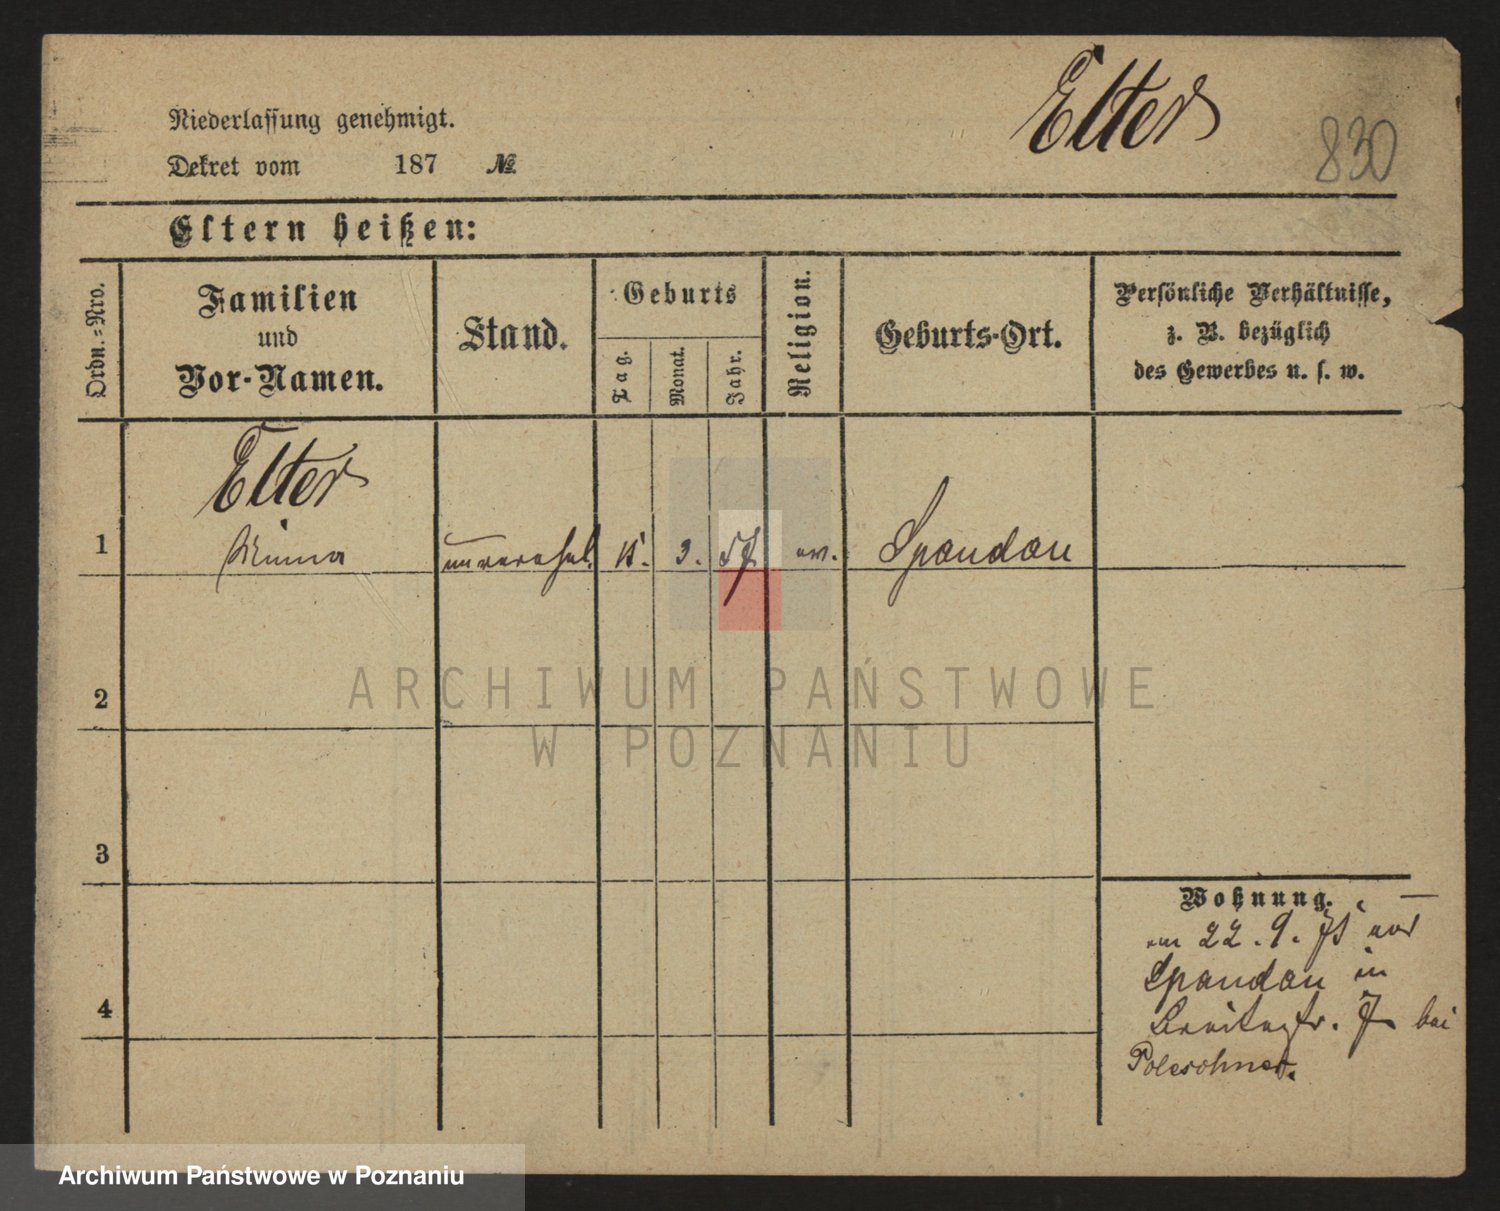 Elter
830
Niederlassung genehmigt.
Dekret vom 187 №
Eltern heißen:
Ordn.-Nro.
Familien
und
Vor-Namen.
Stand.
Geburts
Tag.
Monat.
Jahr.
Religion.
Geburts-Ort.
Persönliche Verhältnisse,
z. B. bezüglich
des Gewerbes u. s. w.
Elter
1 Minna unverehel. 3. 57 ev. Spandau
2
3
4
Wohnung.
am 22. 9. 75 aus
Spandau in
Breitestr. 7 bei
ARCHIWUM PAŃSTWOWE
W POZNANIU
Archiwum Państwowe w Poznaniu